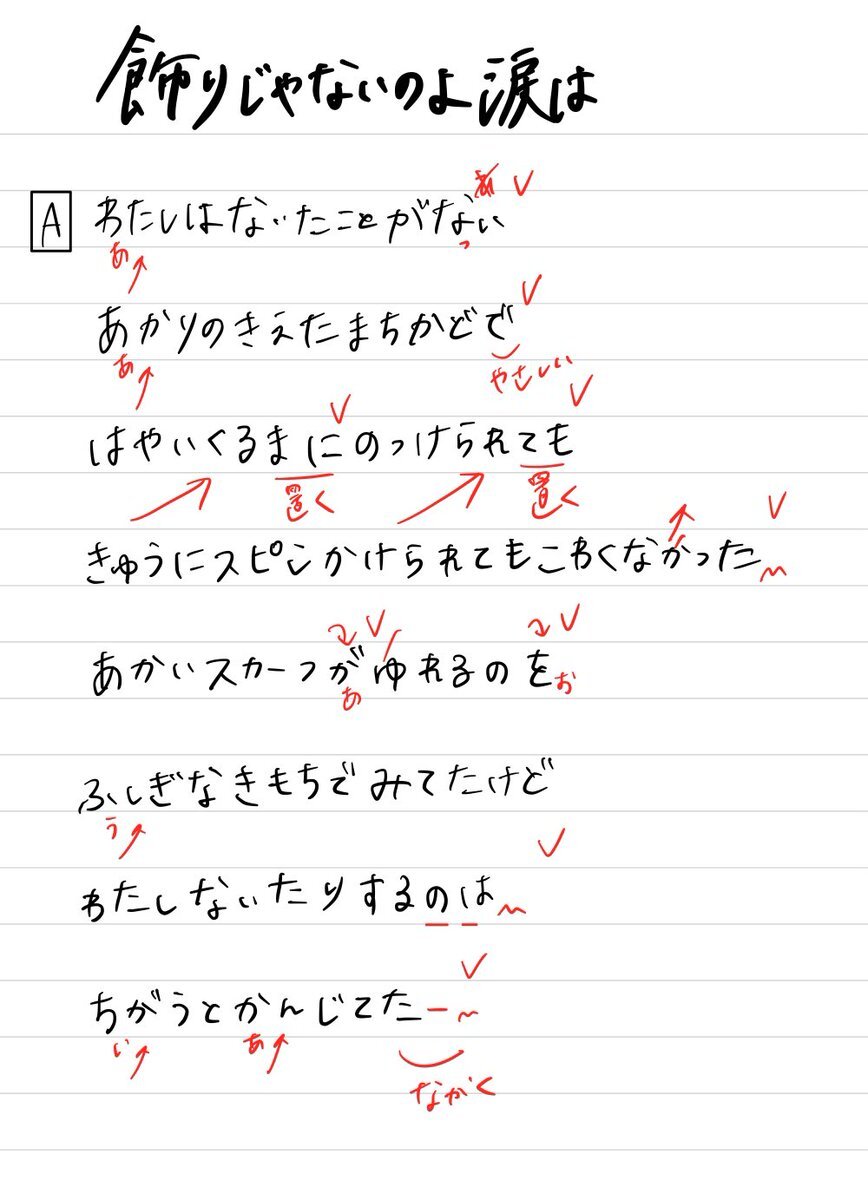 飾りじゃないのよ涙は
A わたしはないたことがない
あ っ
あかりのきえたまちかどで
あ やさしい
はやいくるまにのっけられても
置く 置く
きゅうにスピンかけられてもこわくなかった
あかいスカーフがゆれるのを
あ お
ふしぎなきもちでみてたけど
う
わたしないたりするのは
ちがうとかんじてたー
い あ
ながく